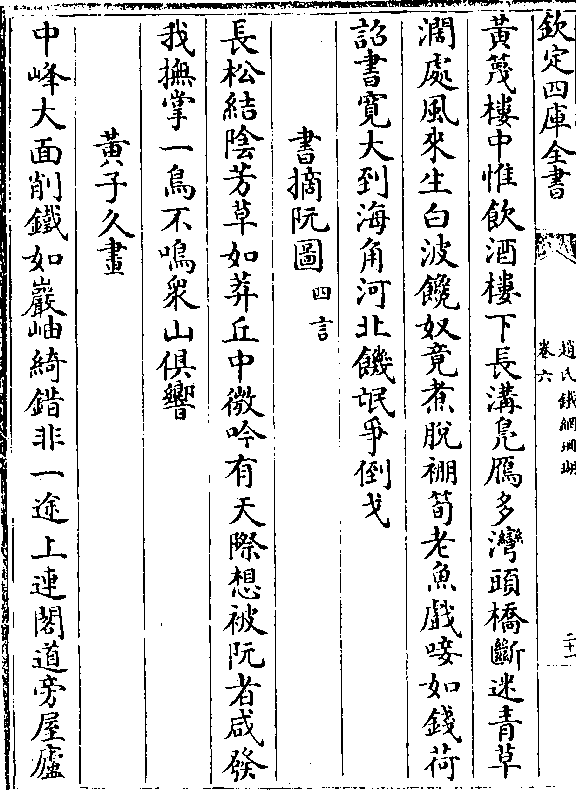 欽定四庫全書
趙氏鐵網珊瑚
卷六
二十一
黃篾樓中惟飲酒樓下長溝鳬鴈多灣頭橋斷迷青草
濶處風來生白波饞奴竟煮脫裯筍老魚戲唼如錢荷
詔書寛大到海角河北饑氓爭倒戈
書摘阮圖四言
長松結陰芳草如莽丘中微吟有天際想被阮者咸發
我撫掌一鳥不鳴衆山俱響
黃子久畫
中峰大面削鐵如巖岫綺錯非一途上連閣道旁屋廬